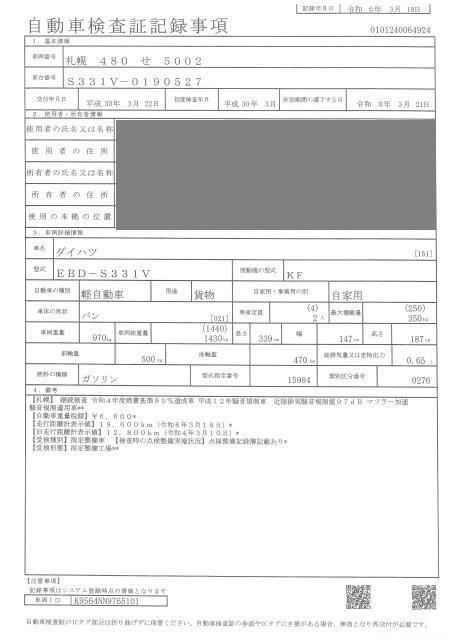 記録年月日 令和 6年 3月 18日
自動車検査証記録事項
0101240064924
1. 基本情報
車両番号 札幌 480 せ 5002
車台番号 S331V-0190527
交付年月日 平成 30年 3月 22日 初度検査年月 平成 30年 3月 有効期間の満了する日 令和 8年 3月 21日
2. 使用者・所有者情報
使用者の氏名又は名称
使用者の住所
所有者の氏名又は名称
所有者の住所
使用の本拠の位置
3. 車両詳細情報
車名 ダイハツ [151]
型式 EBD-S331V 原動機の型式 KF
自動車の種別 軽自動車 用途 貨物 自家用・事業用の別 自家用
車体の形状 バン [021] 乗車定員 (4) 2人 最大積載量 (250) 350kg
車両重量 970kg 車両総重量 (1440) 1430kg 長さ 339cm 幅 147cm 高さ 187cm
前軸重 500kg 後軸重 470kg 総排気量又は定格出力 0.65 L
燃料の種類 ガソリン 型式指定番号 15984 類別区分番号 0276
4. 備考
【札幌】 継続検査 令和4年度燃費基準90%達成車 平成12年騒音規制車 近接排気騒音規制値97dB・マフラー加速
騒音規制適用車**
【自動車重量税額】¥6,600*
【走行距離計表示値】19,600km(令和6年3月18日)*
【旧走行距離計表示値】12,800km(令和4年3月10日)*
【受検種別】指定整備車 【検査時の点検整備実施状況】点検整備記録簿記載あり*
【受検形態】指定整備工場**
【注意事項】
記録事項はシステム登録時点の情報となります
車両ID K9564NN9765101
自動車検査証のICタグ部分は折り曲げずに保管ください。自動車検査証の券面やICタグにき損がある場合、無効となり再交付が必要です。